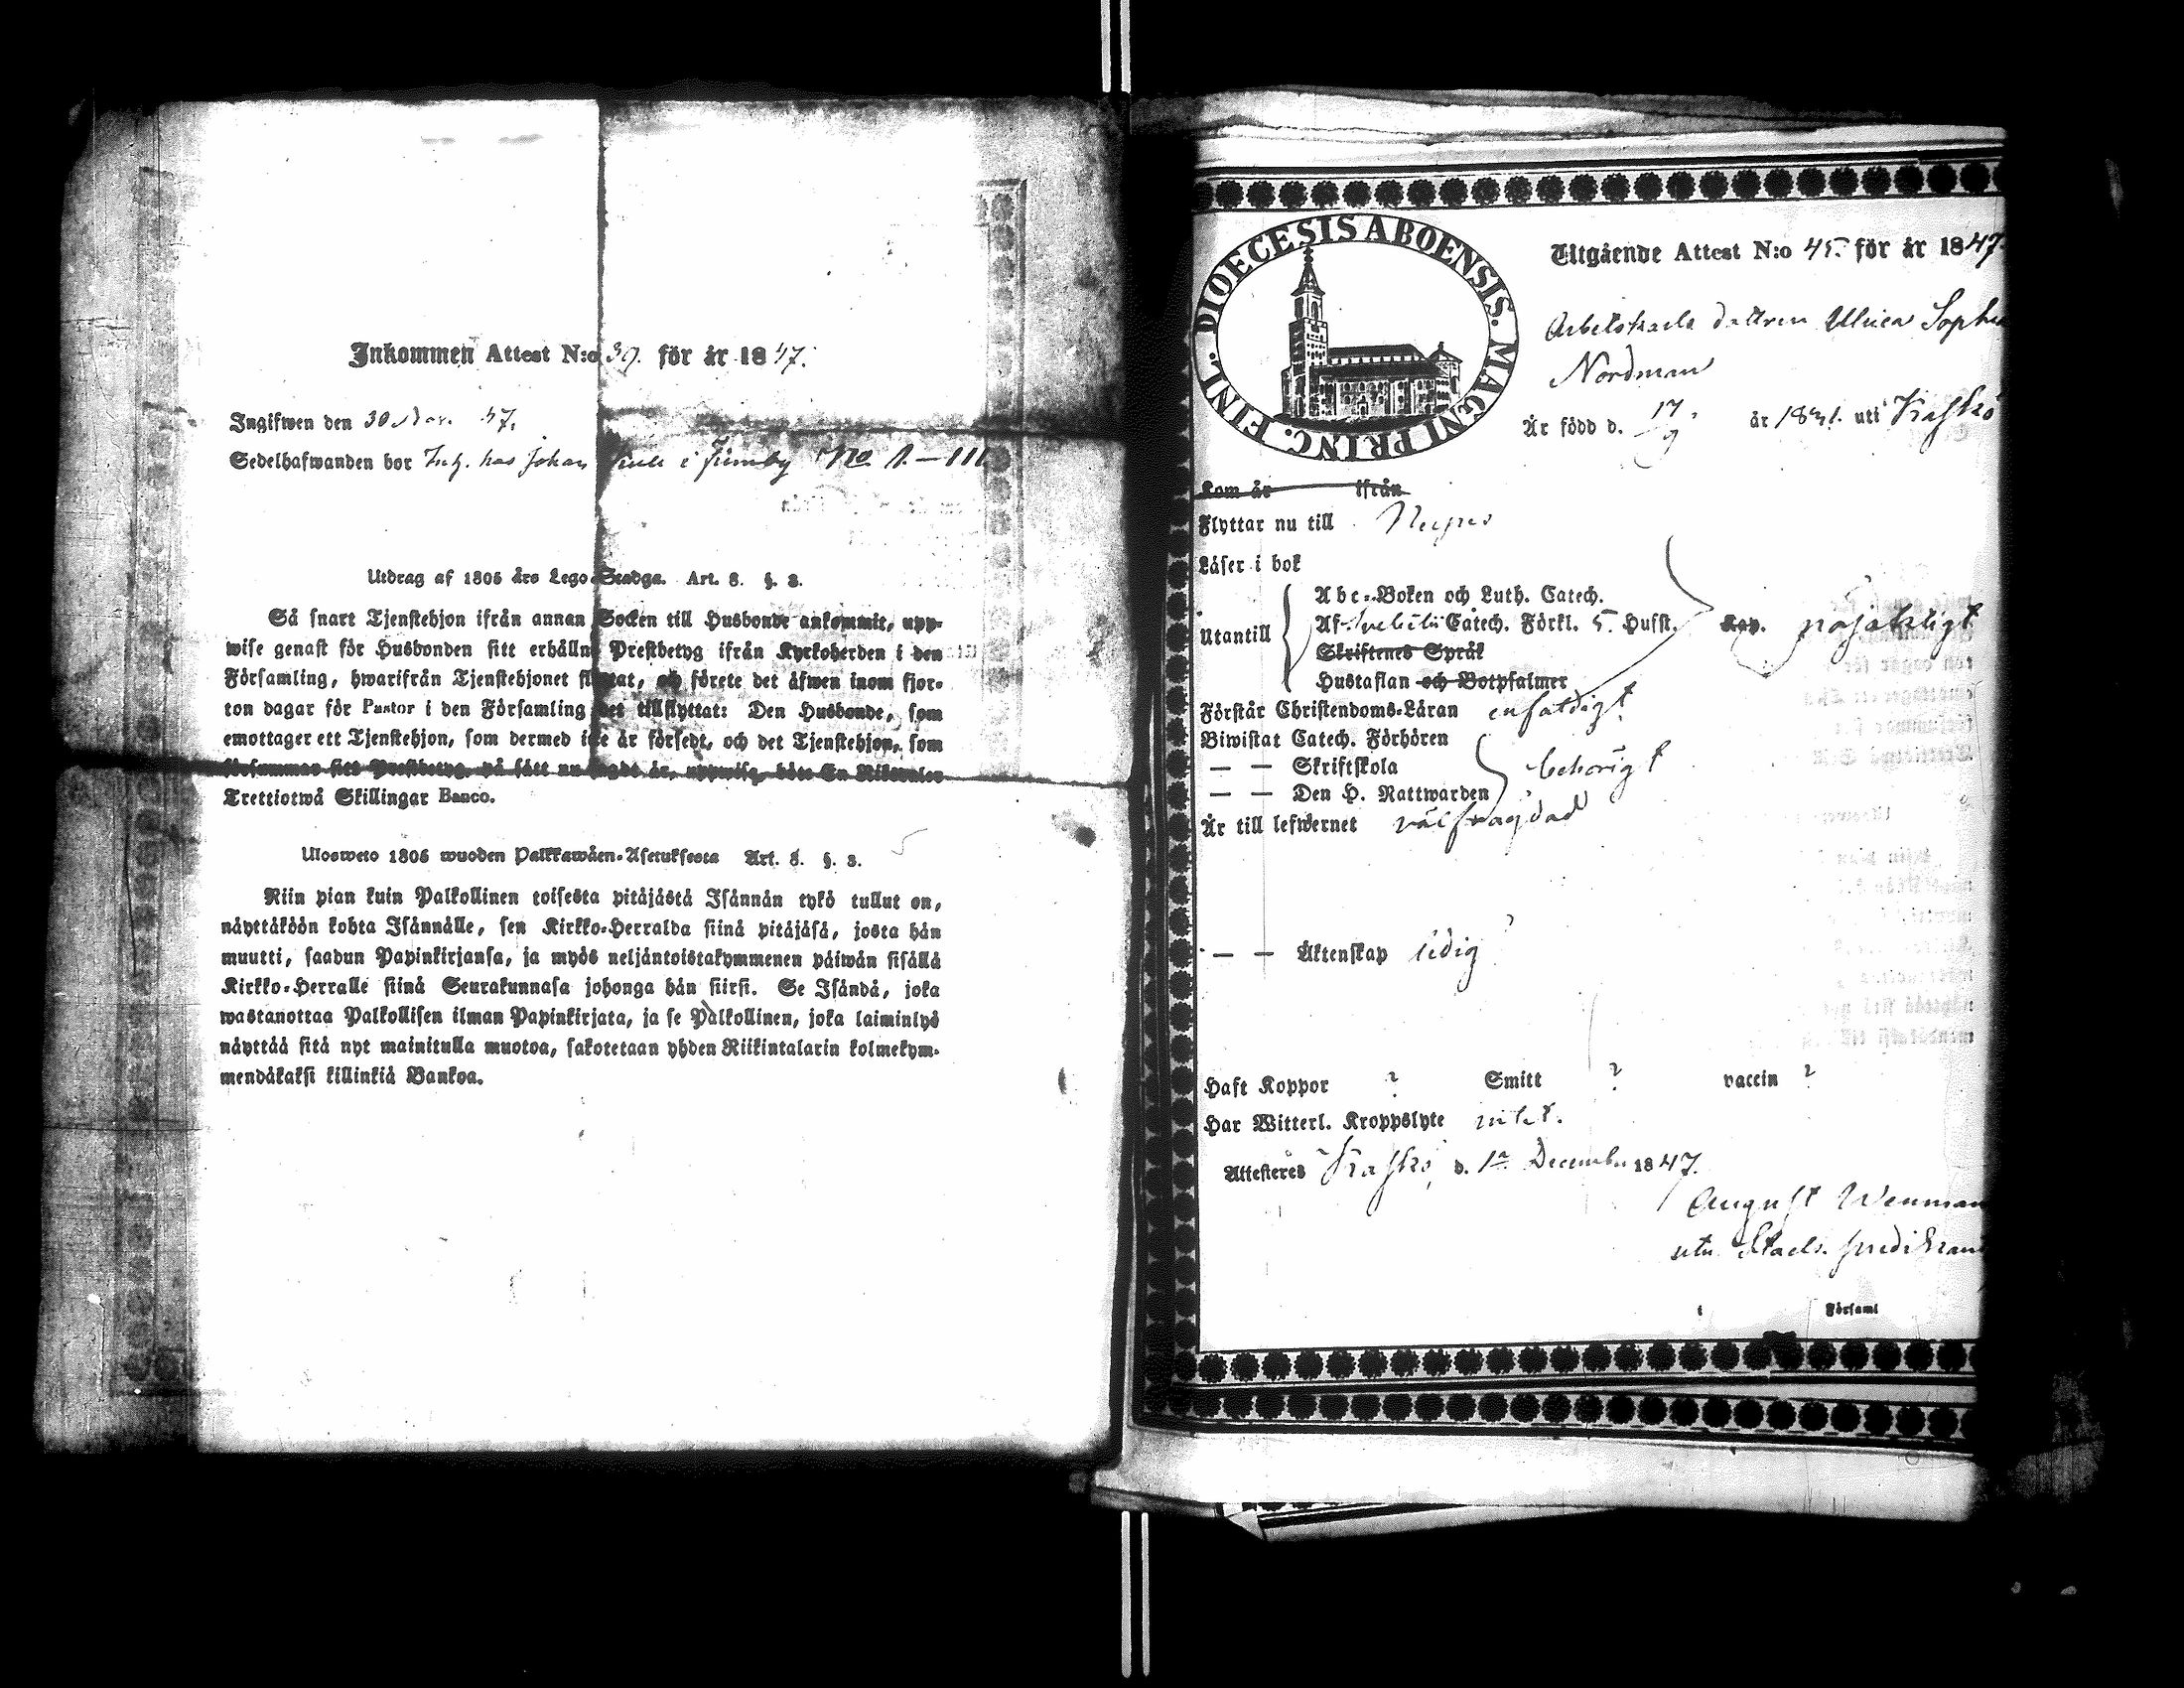 Inkommen Attest N:o 39. för år 1847.
Ingifwen den 30 Nov. 47.
Sedelhafwanden bor Inh. hos Johan i No 1.—111
Utdrag af 1805 års Lego-Stadga. Art. 8. §. 3.
Så snart Tjenstehjon ifrån annan Socken till Husbonde ankommit, upp-
wise genast för Husbonden sitt erhållne Prestbetyg ifrån Kyrkoherden i den
Församling, hwarifrån Tjenstehjonet flyttat, och förete det äfwen inom fjor-
ton dagar för Pastor i den Församling det tillflyttat: Den Husbonde, som
emottager ett Tjenstehjon, som dermed icke är försedt, och det Tjenstehjon, som
försummar sitt Prestbetyg, på sätt nu sagdt är, uppwisa, böte En Riksdaler
Trettiotwå Skillingar Banco.
Ulosweto 1805 wuoden Palkkawäen-Asetuksesta Art. 8. §. 3.
Niin pian kuin Palkollinen toisesta pitäjästä Isännän tykö tullut on,
näyttäköön kohta Isännälle, sen Kirkko-Herralda siinä pitäjäsä, josta hän
muutti, saadun Papinkirjansa, ja myös neljäntoistakymmenen päiwän sisällä
Kirkko-Herralle siinä Seurakunnasa johonga hän siirsi. Se Isändä, joka
wastanottaa Palkollisen ilman Papinkirjata, ja se Palkollinen, joka laiminlyö
näyttää sitä nyt mainitulla muotoa, sakotetaan yhden Riikintalarin kolmekym-
mendäkaksi killinkiä Bankoa.
DIOECESIS ABOENSIS. MAGNI PRINC. FINL.
Utgående Attest N:o 45. för år 1847.
Arbetskarls dottren Ulrica Sophia
Nordman
Är född d. 17/9 år 1831. uti Kaskö
Kom år ifrån
Flyttar nu till Nerpes
Läser i bok
Utantill
Abc-Boken och Luth. Catech.
Af Svebilii Catech. Förkl. 5. Husst. Kap. nöjaktligt
Skriftenes Språk
Hustaflan och Botpsalmer
Förstår Christendoms-Läran enfaldigt
Biwistat Catech. Förhören
— — Skriftskola behörigt
— — Den H. Nattwarden
Är till lefwernet välfrägdad
— — Äktenskap ledig
Haft Koppor ? Smitt ? vaccin ?
Har Witterl. Kroppslyte intet.
Attesteres Kaskö, d. 1a December 1847.
August Wenman
utn. Stads-predikant
i Församl